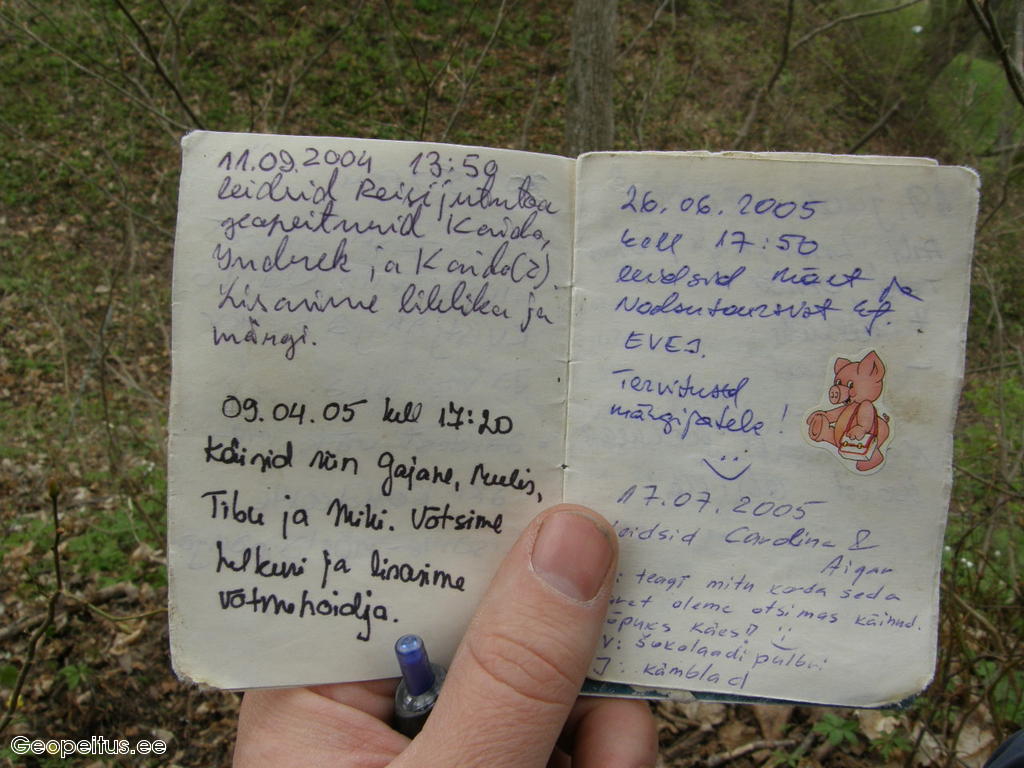 11.09.2004 13:50
leidsid Reisijututoa
geopeiturid Kaido,
Indrek ja Kaido(2).
Lisasime liiklika ja
märgi.
09.04.05 kell 17:20
Käisid siin Gajane,
Tibu ja Miki. Võtsime
helkuri ja lisasime
võtmehoidja.
26.06.2005
kell 17:50
leidsid ja
EVEJ.
Tervitused
märgipatele!
17.07.2005
leidsid Carolina &
Aigar
: teagi mitu korda seda
oleme otsimas käinud.
Lõpuks käes!!
V: šokolaadi pulbri
J: kämblad
Geopeitus.ee